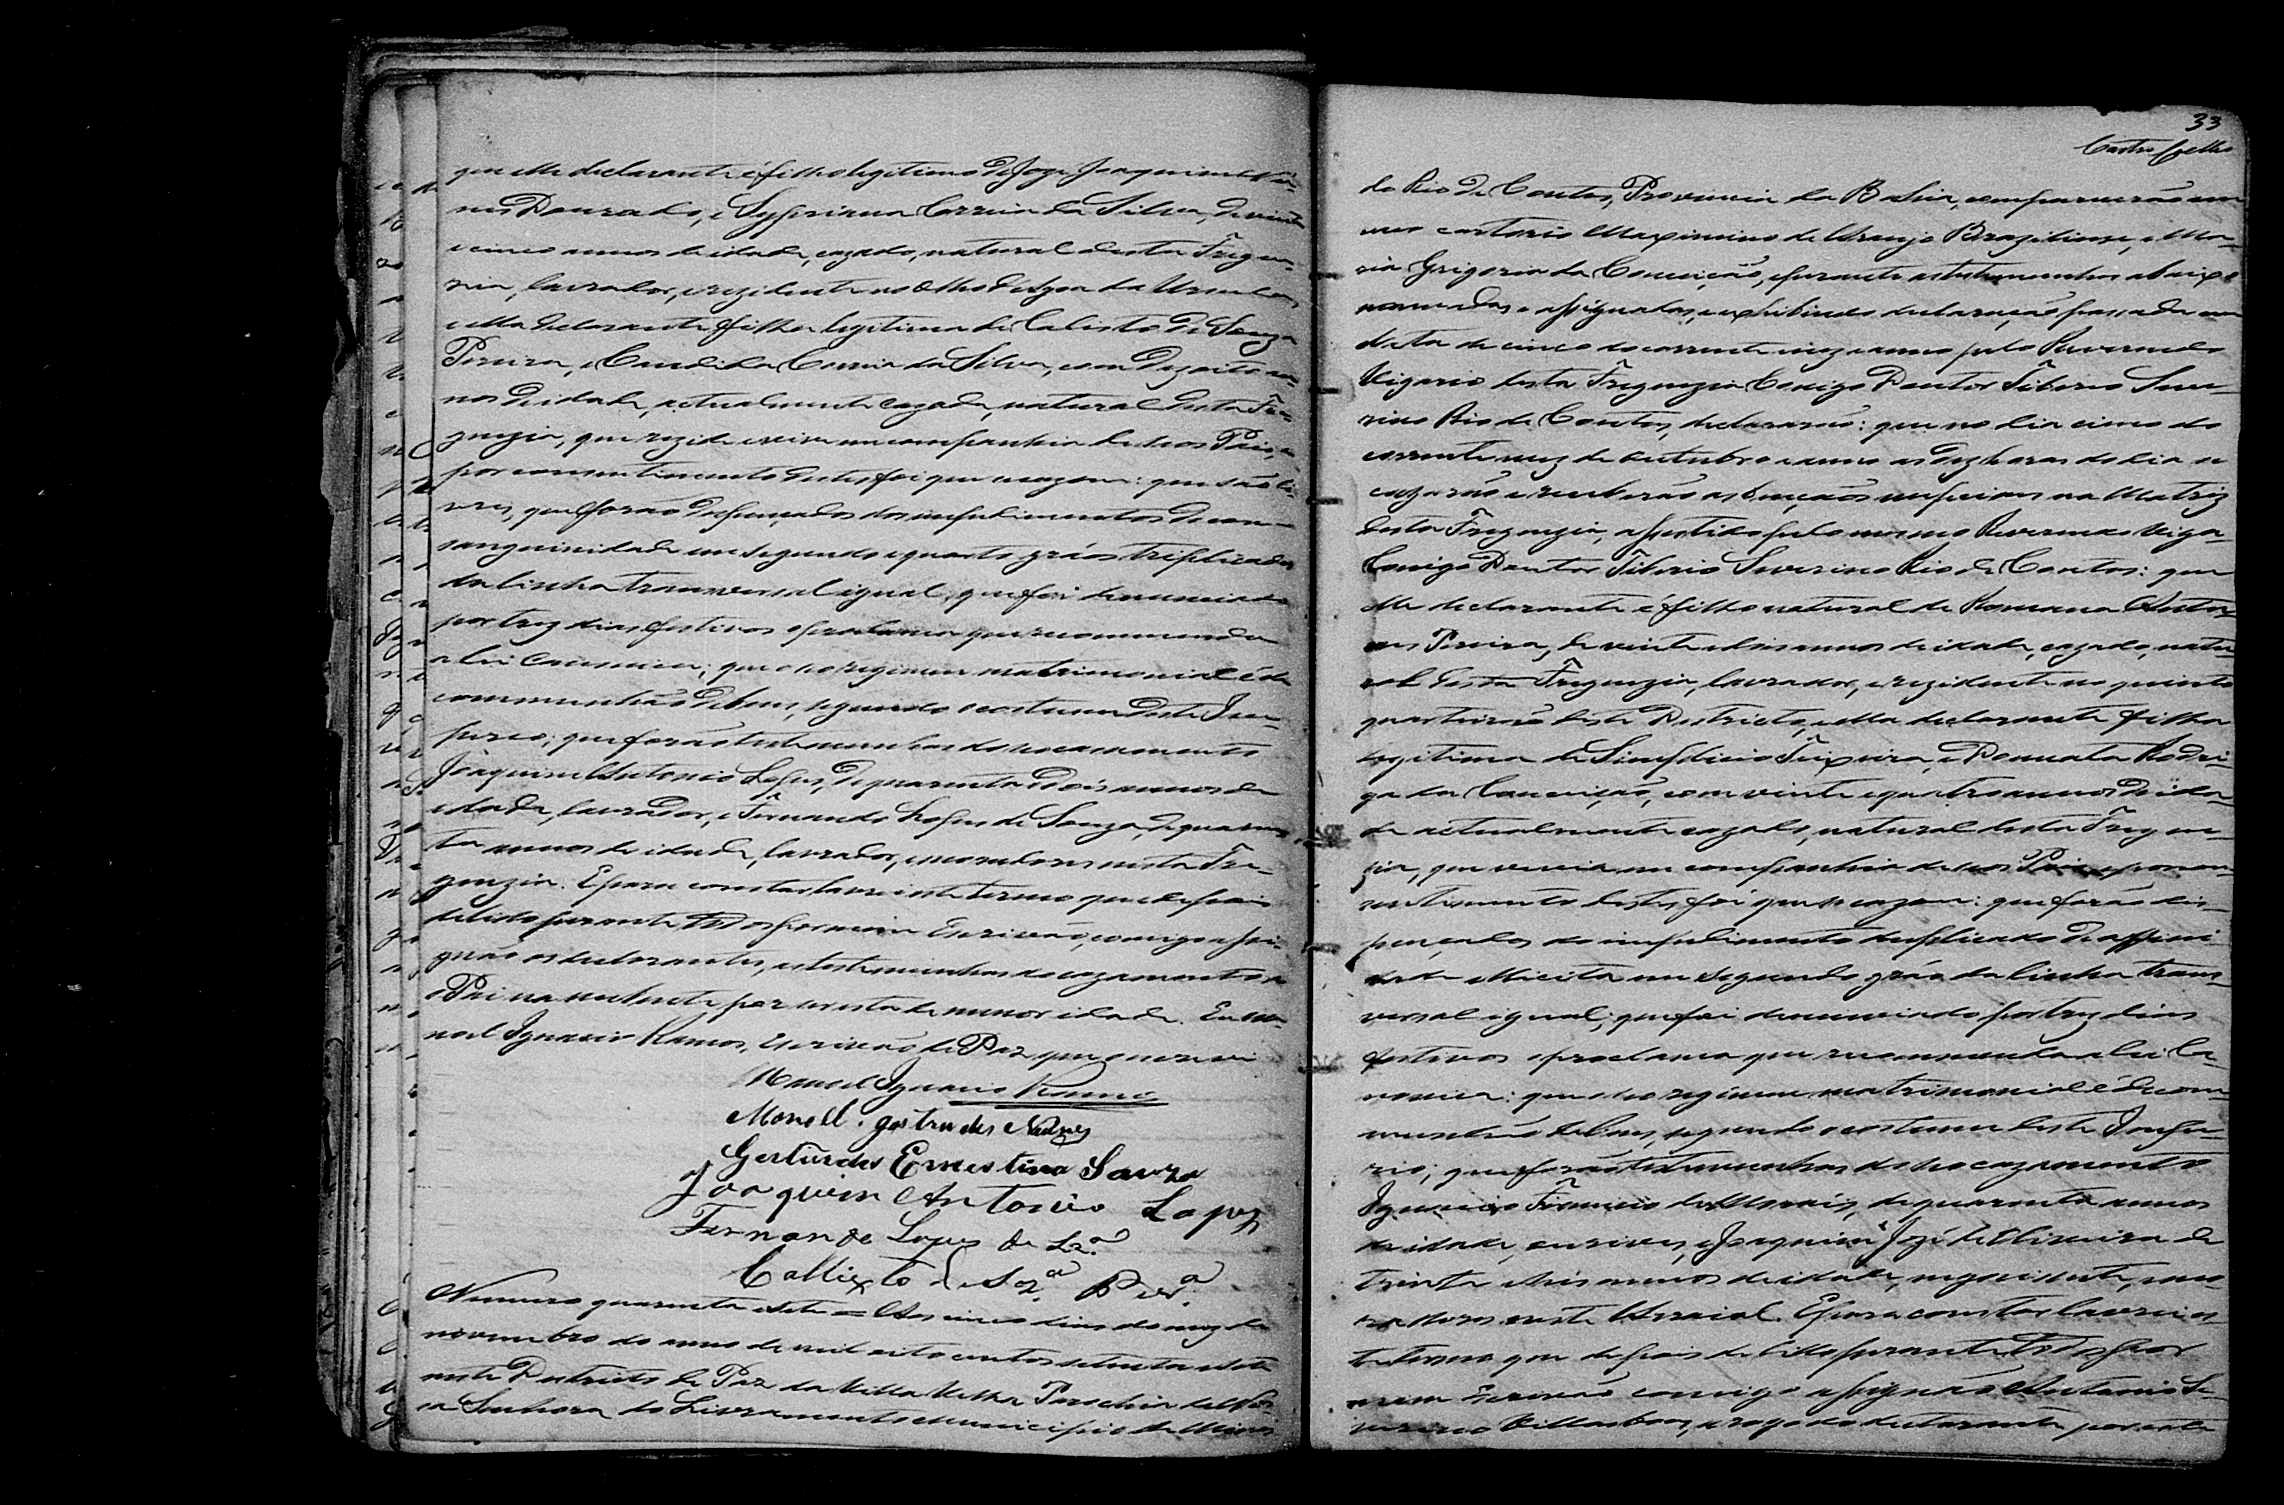 que elle declarante é filho legitimo de José Joaquim
nes Dourado, e Sypriana Correia da Silva, de vinte
e cinco annos de idade, cazado, natural desta Fregue-
zia, lavrador, e rezidente no Olho d'agoa da
e ella declarante filha legitima de Calisto de Souza
Pereira, e Candida Correia da Silva, com dezoito an-
nos de idade, actualmente cazada, natural desta Fre-
guezia, que rezide e vivia em companhia de seos Pais, e
por consentimento destes foi que se cazou: que são li-
vres, que forão dispençados dos impedimentos de con-
sanguinidade em segundo e quarto gráos triplicados
da linha transversal igual, que foi denunciado
por trez dias festivos o proclama que recommenda
a lei Canonica; que o seo regimen matrimonial é da
communhão de bens, segundo o costume deste Im-
perio; que forão testemunhas do seo casamento
Joaquim Antonio Lopes, de quarenta e dois annos de
idade, lavrador, e Fernando Lopes de Souza, de quaren-
ta annos de idade, lavrador, e moradores nesta Fre-
guezia. E para constar lavrei este termo que depois
de lido perante todos por mim Escrivão, comigo assi-
gnão os declarantes, e testemunhas do cazamento e
o Pai na nubente por ser esta de menor idade. Eu Ma-
noel Ignacio Ramos, Escrivão de Paz que o escrevi
Manoel Ignacio Ramos
Manoel
Gertrudes Ernestina Souza
Joaquim Antonio Lopes
Fernande Lopes de Sz.ª
Callixto de Soz.ª Per.ª
Numero quarenta e sete = Aos cinco dias do mez de
novembro do anno de mil oito centos setenta e sete
neste Destricto de Paz da Villa Velha Parochia de Nos-
sa Senhora do Livramento Municipio de Minas
33
Castro
do Rio de Contas, Provincia da Bahia, comparecerão em
meo cartorio Maximino de Araujo Braziliense, e Ma-
ria Grigoria da Conceição, e perante as testemunhas abaixo
nomeadas e assignadas, e exhibindo declaração passada em
data de cinco do corrente mez e anno pelo Reverendo
Vigario desta Freguezia Conigo Doutor Tiberio Seve-
rino Rio de Contas, declararão: que no dia cinco do
corrente mez de outubro e anno as dez horas do dia se
cazarão e receberão as bençãos nupciaes na Matriz
desta Freguezia, assistido pelo mesmo Reverendo Vigo.
Conigo Doutor Tiberio Severino Rio de Contas: que
elle declarante é filho natural de Romana
Pereira, de vinte e dois annos de idade, cazado, natu-
ral desta Freguezia, lavrador, e rezidente no quinto
quarteirão deste Destricto, e ella declarante filha
legitima de Simplicio Teixeira, e Donata Rodri-
ga da Conceição, com vinte e quatro annos de ida-
de actualmente cazada, natural desta Fregue-
zia, que vevia em companhia de seos Pais e por con-
sentimento destes foi que se cazou: que forão dis-
pençados do impedimento duplicado de affini-
dade illicita em segundo gráo da linha trans-
versal igual; que foi denunciado por trez dias
festivos o proclama que recommenda a lei Ca-
nonica: que o seo regimen matrimonial é de com-
munhão de bens, segundo o costume deste Impe-
rio; que forão testemunhas do seo cazamento
Ignacio Firmino de Moraes, de quarenta annos
de idade, ourives, e Joaquim José de Oliveira de
trinta e seis annos de idade, negociante, mo-
radores neste Arraial. E para constar lavrei es-
te termo que depois de lido perante todos por
mim Escrivão comigo assignão Antonio Se-
verino Villasboas, a rogo do declarante por este